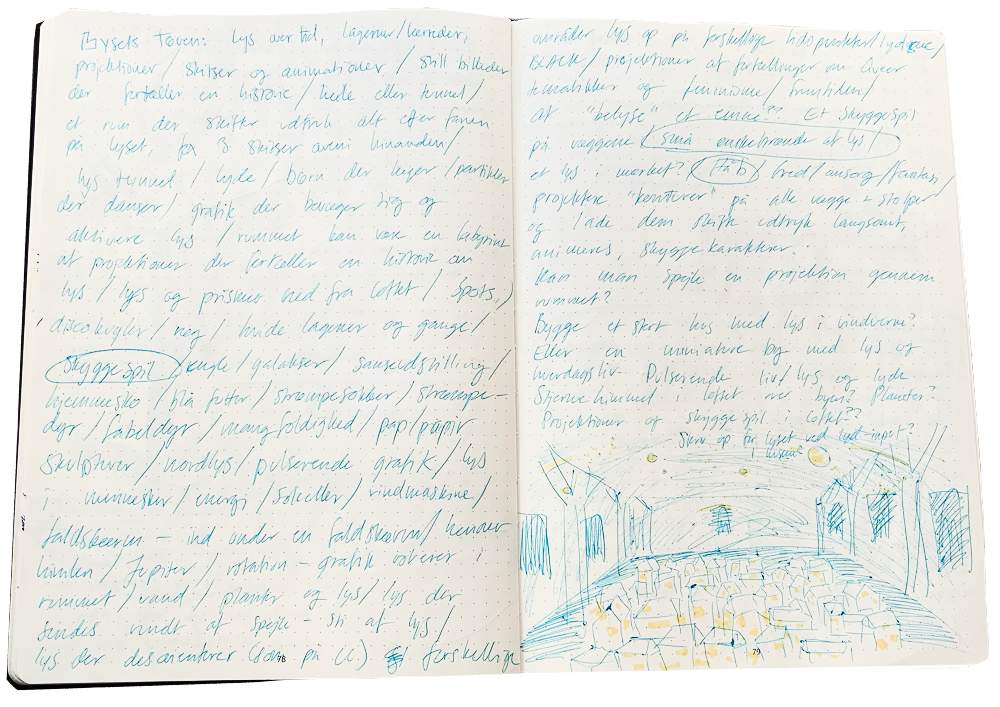 Lysets Toven: lys over tid, lagener/lærreder,
projektioner / skitser og animationer / still billeder
der fortæller en historie / hule eller tunnel /
et rum der skifter udtryk alt efter farven
på lyset, fx 3 skitser oveni hinanden /
lys tunnel / lyde / børn der leger / partikler
der danser / grafik der bevæger sig og
aktivere lys / rummet kan være en labyrint
af projektioner der fortæller en historie om
lys / lys og prismer ned fra loftet / spots,
discokugler / røg / hvide lagener og gange /
skyggespil / engle / galakser / sanseudstilling /
hjemmesko / blå futter / strømpesokker / strømpe-
dyr / fabeldyr / mangfoldighed / pap/papir
skulpturer / nordlys / pulserende grafik / lys
i mennesker / energi / solceller / vindmaskine /
faldskærm - ind under en faldskærm /
himlen / Jupiter / rotation - grafik roterer i
rummet / vand / planter og lys / lys der
sendes rundt af spejle - sti af lys /
lys der desorienterer (som på CC.) forskellige
78
områder lys op på forskellige tidspunkter /
BLACK / projektioner af fortællinger om Queer
tematikker og feminisme / fremtiden /
at "belyse" et emne?? Et skyggespil
på væggene små ønskebrønde af lys /
et lys i mørket? Håb / fred / omsorg / fantasi /
projektere "konturer" på alle vægge + stolper
og lade dem skifte udtryk langsomt,
animeres, skygge karakterer.
Kan man spejle en projektion gennem
rummet?
Bygge et stort hus med lys i vinduerne?
Eller en miniature by med lys og
hverdagsliv. Pulserende liv/lys og lyde
Stjernehimmel i loftet over byen? Planeter?
Projektioner og skyggespil i loftet??
Skru op for lyset ved lyd input?
79